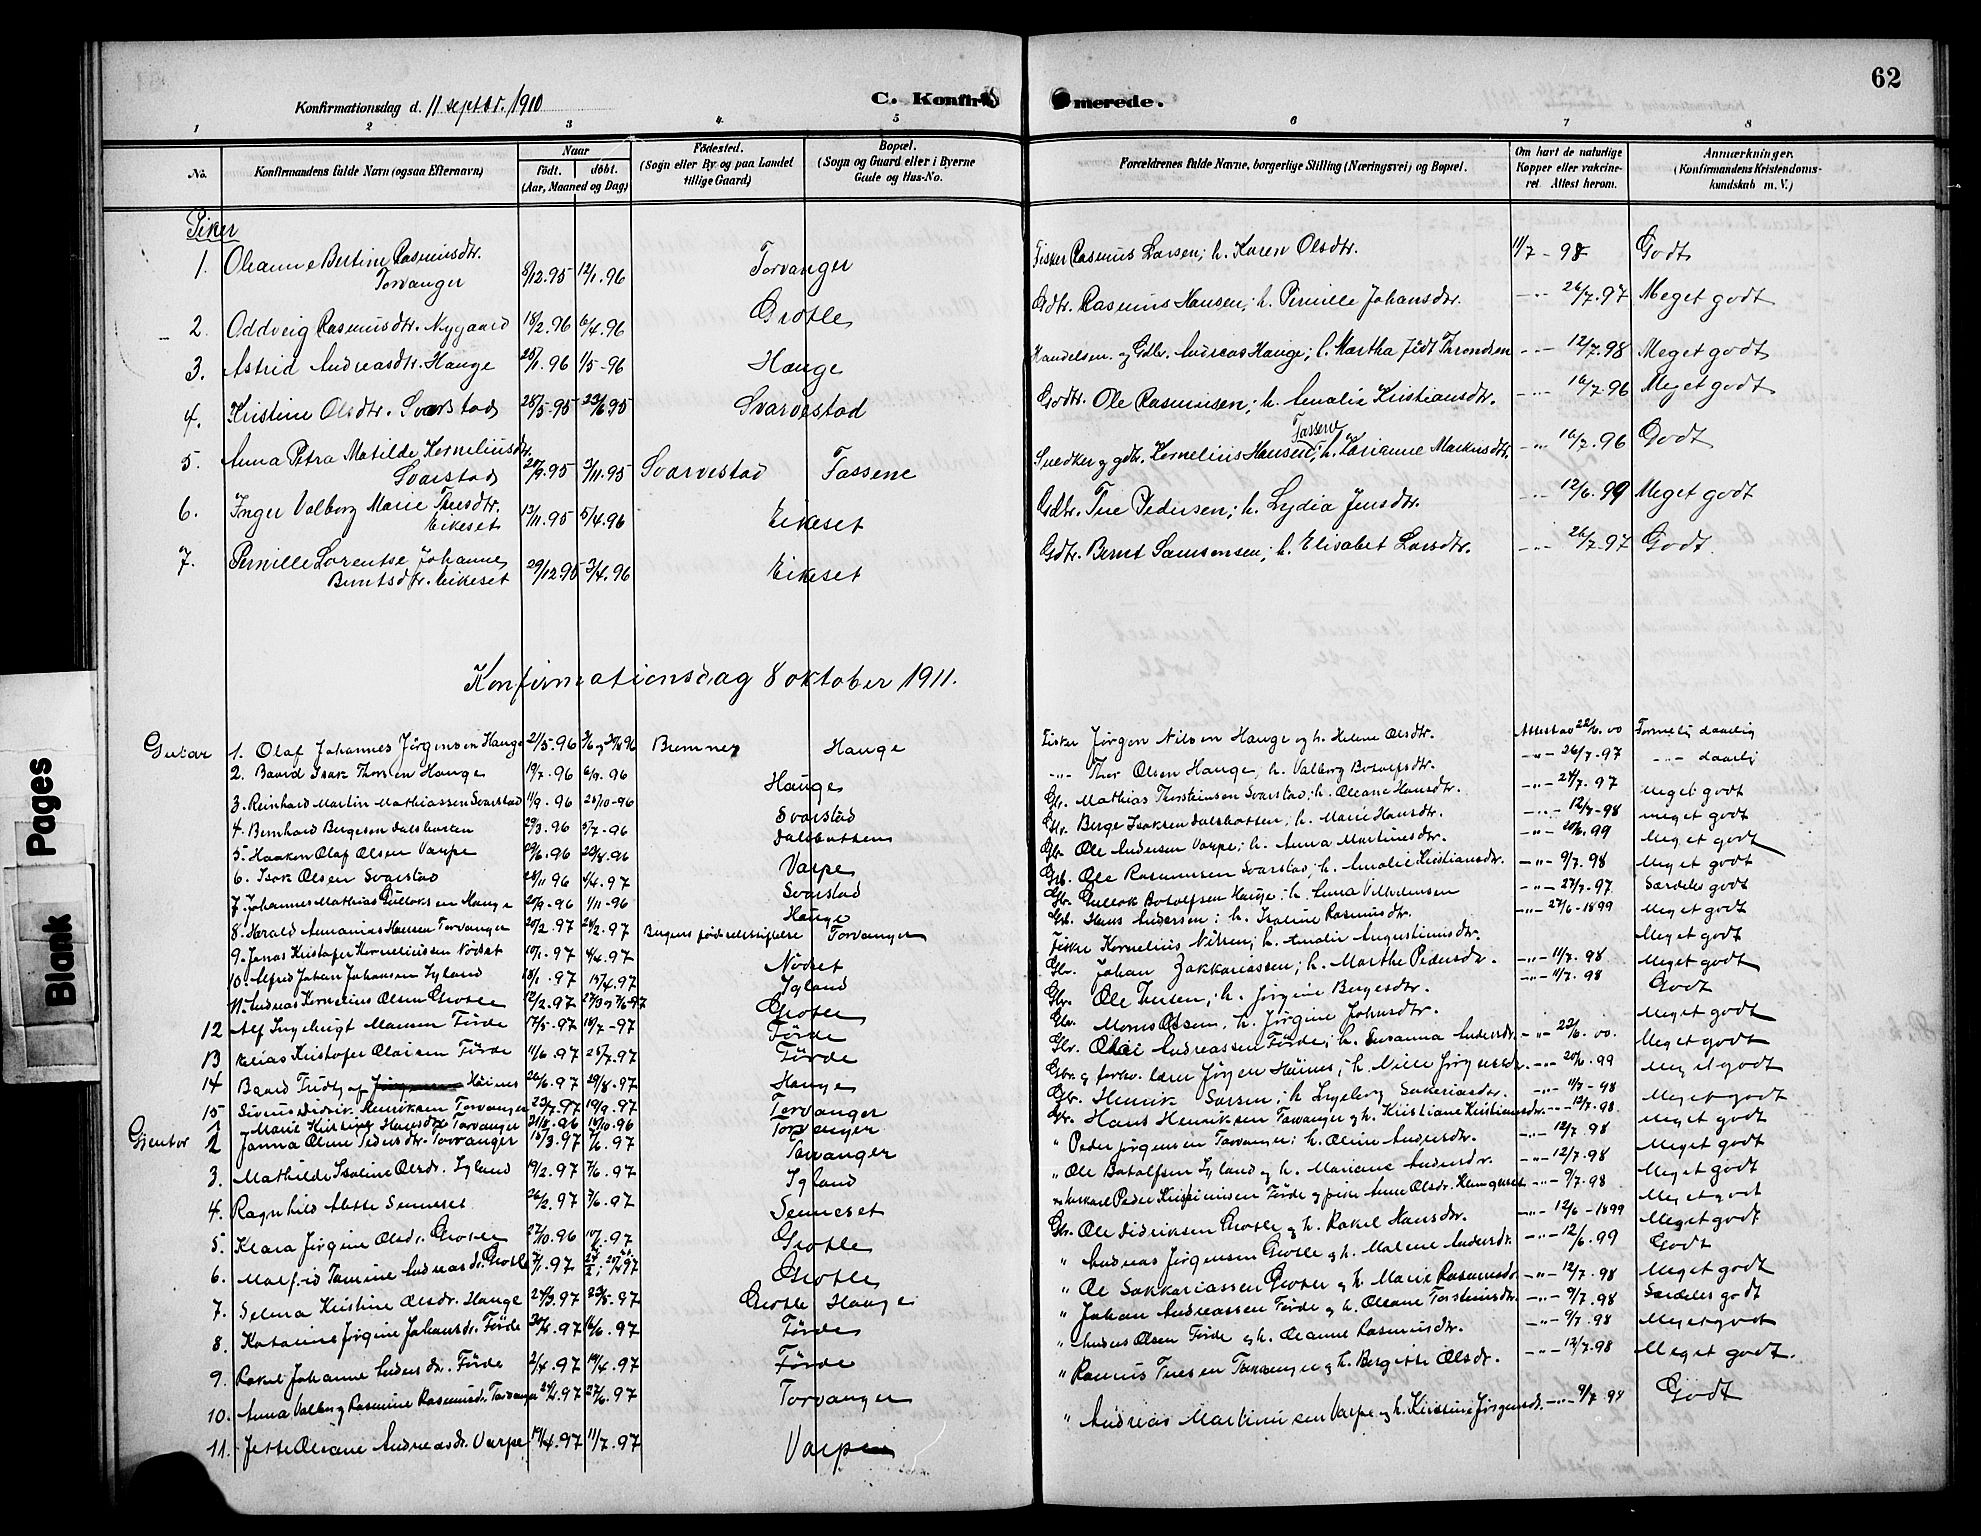 62
Konfirmationsdag d. 11 septbr. 1910
C. Konfir merede.
1 2 3 4. 5 6 7 8
No.
Konfirmandens fulde Navn (ogsaa Efternavn)
Naar
født. døbt.
(Aar, Maaned og Dag)
Fødested.
(Sogn eller By og paa Landet
tillige Gaard)
Bopæl.
(Sogn og Gaard eller i Byerne
Gade og Hus-No.
Forældrenes fulde Navne, borgerlige Stilling (Næringsvei) og Bopæl.
Om havt de naturlige
Kopper eller vakcine-
ret. Attest herom.
Anmærkninger.
(Konfirmandens Kristendoms-
kundskab m. V.)
Piker
1. Oleanne Bertine Rasmusdtr. Torvanger 8/12.95 12/1.96 Torvanger Fisker Rasmus Larsen; h. Karen Olsdtr. 11/7 - 98 Godt
2. Oddveig Rasmusdtr. Nygaard 18/2.96 6/4.96 Grotle Gdbr. Rasmus Hansen; h. Pernille Johansdtr. -"- 26/7.97 Meget godt
3. Astrid Andreasdtr. Hauge 25/1.96 1/5-96 Hauge Handelsm. og Gdbr. Andreas Hauge; h. Martha født Throndsen -"- 12/7.98 Meget godt
4. Kristine Olsdtr. Svarstad 28/5.95 23/6.95 Svarvestad Gdbr. Ole Rasmussen; h. Amalie Kristiansdtr. -"- 16/7.96 Meget godt
5. Anna Petra Matilde Korneliusdtr. Svarstad 20/9.95 3/11.95 Svarvestad Tassene Snedker og gdbr. Kornelius Hansen Tassene; h. Karianne Markusdtr. -"- 16/7.96 Godt
6. Inger Valborg Marie Tuesdtr. Eikeset 13/11.95 5/4.96 Eikeset Gdbr. Tue Pedersen; h. Lydia Jensdtr. -"- 12/6.99 Meget godt
7. Pernille Lorentse Johanne Berntsdtr. Eikeset 29/12.95 3/4.96 Eikeset Gdbr. Bernt Samsonsen; h. Elisabet Larsdtr. -"- 26/7.97 Godt.
Konfirmationsdag 8 oktober 1911.
Gutar 1. Olaf Johannes Jörgensen Hauge 21/5.96 Bremnes Hauge Fisker Jørgen Nilsen Hauge og h. Helene Olsdtr. Attestad 22/6.00 daarlig
2. Baard Isak Thorsen Hauge 19/7.96 6/9.96 Hauge -"- Thor Olsen Hauge, h. Valborg Botolfsdtr. -"- 26/7-97 -"- daarlig
3. Reinhard Martin Mathiassen Svarstad 11/9.96 25/10-96 Svarstad Gbr. Mathias Thorsteinsen Svarstad; h. Oleane Hansdtr. -"- 27/7.97 Meget godt
4. Bernhard Bergesen Dalsbotten 29/3.96 5/7-96 Dalsbotten Gbr. Berge Isaksen Dalsbotten; h. Marie Hansdtr. -"- 12/7-98 meget godt
5. Haakon Olaf Olsen Varpe 29/6.96 20/8.96 Varpe Gbr. Ole Andersen Varpe; h. Anna Martinusdtr. -"- 20/6.99 Meget godt
6. Isak Olsen Svarstad 28/11 96 4/4.97 Svarstad Gbr. Ole Rasmussen Svarstad; h. Amalie Kristiansdtr. -"- 9/7.98 Meget godt
7. Johannes Mathias Gulloksen Hauge 20/9-96 1/11-96 Hauge Gbr. Gullok Botolfsen Hauge; h. Anna Vilhelmsen -"- 27/7.97 Særdeles godt
8. Herald Annanias Hansen Torvanger 20/2.97 24/2.97 Bergens fødselsstiftelse Torvanger Gbr. Hans Andersen; h. Isaline Rasmusdtr. -"- 27/6-1899 Meget godt
9. Jonas Kristofer Korneliussen Nödset 10/1.97 4/4.97 Nödset Fisker Kornelius Nilsen; h. Amalie Augustinusdtr. Meget godt
10. Alfred Johan Johansen Igland 18/1.97 15/4.97 Igland Gbr. Johan Zakkariassen; h. Marthe Pedersdtr. -"- 11/7.98 Meget godt
11. Andreas Kornelius Olsen Grotle 12/2.97 Grotle Gbr. Ole Iversen; h. Jörgine Bergesdtr. -"- 11/7.98 Godt
12 Alf Ingebrigt Monsen Förde 17/5.97 16/7-97 Förde Gbr. Mons Olsen, h. Jörgine Johansdtr. Meget godt
13 Elias Kristofer Olaisen Förde 11/6.97 25/7.97 Förde Gbr. Olai Andreassen Förde; h. Susanna Andersdtr. -"- 22/6.00. Meget godt
14 Baard Trudly af Höines 26/6.97 29/8.97 Hauge Gbr. og forhv. lærer Jörgen Höines; h. Jörgensdtr. -"- 20/6.99 Meget godt
15 Severin Didrik Henriksen Torvanger 23/7.97 19/9.97 Torvanger Gbr. Henrik Larsen; h. Ingeborg Sakariasdtr. -"- 11/7-98 Meget godt
1 Marie Kristine Hansdtr. Torvanger 21/8.96 18/10.96 Torvanger Gbr. Hans Henriksen Torvanger og h. Kristiane Kristiansdtr. -"- 12/7.98 Meget godt
Gjentor 2 Janna Oline Pedersdtr. Torvanger 15/3.97 7/6.97 Torvanger " Peder Jörgensen Torvanger; h. Oline Andersdtr. -"- 12/7.98 Meget godt
3. Mathilde Isaline Olsdr. Igland 19/2.97 7/6.97 Igland " Ole Botolfsen Igland og h. Mariane Andersdr. -"- 12/7.98 Meget godt
4. Ragnhild Alette Senneset 26/2.97 7/6.97 Senneset Peder Kristiansen Förde og pike Anne Olsdr. -"- 9/7.98 Meget godt
5. Klara Jörgine Olsdr. Grotle 27/10.96 10/7.97 Grotle Gbr. Ole Didriksen Grotle og h. Rakel Hansdtr. -"- 12/6-1899 Meget godt
6. Malfrid Tamine Andreasdr. Grotle 7/1.97 Grotle " Andreas Jörgensen Grotle og h. Malene Andersdr. -"- 12/6.99 Godt
7. Selma Kristine Olsdr. Hauge 24/3.97 23/5-97 Grotle Hauge " Ole Sakkariassen Grotle og h. Marie Rasmusdr. -"- 12/7.98 Meget godt
8. Katarine Jörgine Johansdr. Förde 30/4.97 16/6.97 Förde " Johan Andreassen Förde og h. Oleane Torsteinsdtr. -"- 9/7.98 Særdeles godt
9. Rakel Johanne Andersdr. Förde 2/4.97 19/4.97 Förde " Anders Olsen Förde og h. Oleanne Rasmusdtr. -"- 9/7.98 Meget godt
10. Anna Valborg Rasmine Rasmusdr. Torvanger 24/4.97 27/6.97 Torvanger " Rasmus Tuesen Torvanger og h. Bergitte Olsdr. -"- 12/7.98 Meget godt.
11. Jette Oleane Andreasdr. Varpe 14/4.97 11/7.97 Varpe " Andreas Martinussen Varpe og h. Kristine Jörgensdr. -"- 9/7.98 Godt
Blank Pages